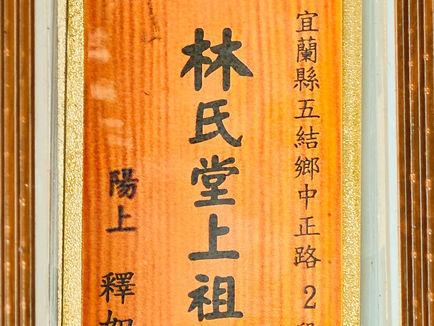 宜蘭縣五結鄉中正路2
林氏堂上祖
陽上 釋如